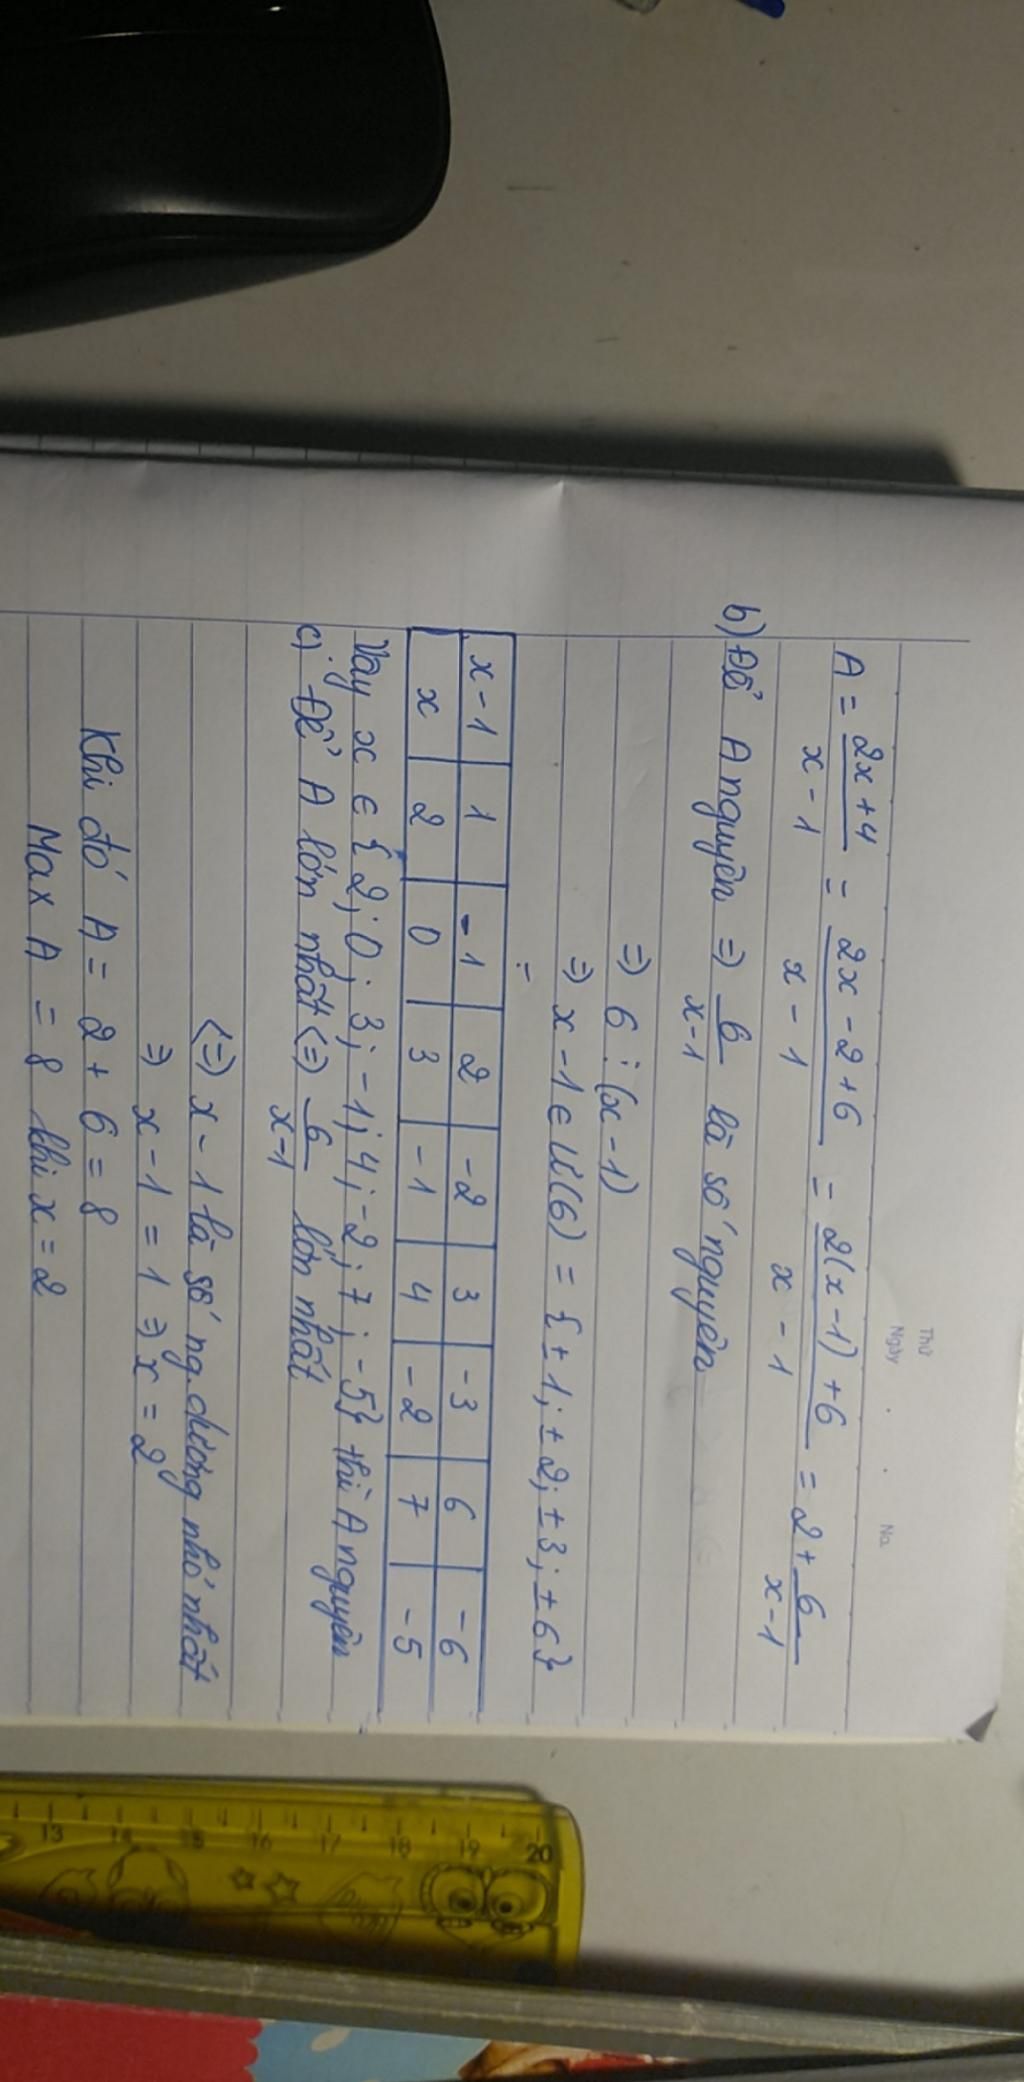 Thứ
Ngày . . Na
A = 2x+4 / x-1 = 2x-2+6 / x-1 = 2(x-1)+6 / x-1 = 2 + 6 / x-1
b) Để A nguyên => 6 / x-1 là số nguyên
=> 6 ⋮ (x-1)
=> x-1 ∈ Ư(6) = {±1; ±2; ±3; ±6}
x-1 1 -1 2 -2 3 -3 6 -6
x 2 0 3 -1 4 -2 7 -5
Vậy x ∈ {2; 0; 3; -1; 4; -2; 7; -5} thì A nguyên
c) Để A lớn nhất <=> 6 / x-1 lớn nhất
<=> x-1 là số ng. dương nhỏ nhất
=> x-1 = 1 => x = 2
Khi đó A = 2 + 6 = 8
Max A = 8 khi x = 2
13 14 15 16 17 18 19 20